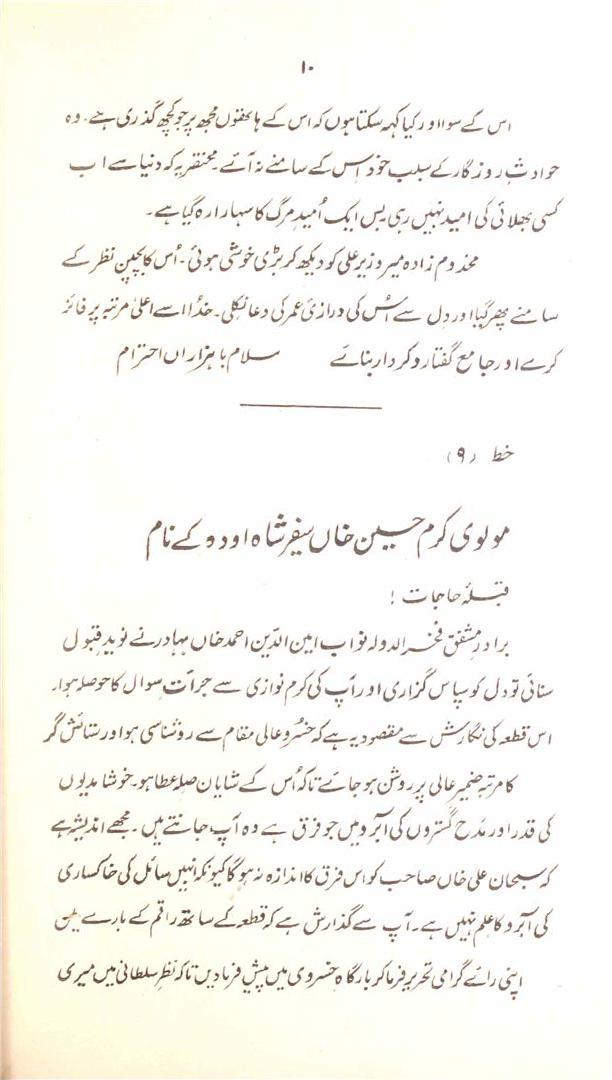 ۱۰
اس کے سوا اور کیا کہہ سکتا ہوں کہ اس کے ہاتھوں مجھ پر جو کچھ گذری ہے۔ وہ
حوادثِ روزگار کے سبب خود اس کے سامنے نہ آئے۔ مختصر یہ کہ دنیا سے اب
کسی بھلائی کی امید نہیں رہی بس ایک اُمیدِ مرگ کا سہارا رہ گیا ہے۔
مخدوم زادہ میر وزیر علی کو دیکھ کر بڑی خوشی ہوئی۔ اُس کا بچپن نظر کے
سامنے پھر گیا اور دل سے اُس کی درازیٔ عمر کی دعا نکلی۔ خدا اسے اعلیٰ مرتبہ پر فائز
کرے اور جامع گفتار و کردار بنائے سلام با ہزاراں احترام
خط (۹)
مولوی کرم حسین خاں سفیر شاہ اودہ کے نام
قبلۂ حاجات !
برادرِ مشفق فخر الدولہ نواب امین الدین احمد خاں بہادر نے نویدِ قبول
سنائی تو دل کو سپاس گزاری اور آپ کی کرم نوازی سے جرأتِ سوال کا حوصلہ ہوا۔
اس قطعہ کی نگارش سے مقصود یہ ہے کہ خسرو عالی مقام سے روشناسی ہو اور ستائش گر
کا مرتبہ ضمیر عالی پر روشن ہو جائے تاکہ اُس کے شایان صلہ عطا ہو۔ خوشامدیوں
کی قدر اور مدح گستروں کی آبرو میں جو فرق ہے وہ آپ جانتے ہیں۔ مجھے اندیشہ ہے
کہ سبحان علی خاں صاحب کو اس فرق کا اندازہ نہ ہو گا کیونکہ انہیں سائل کی خاکساری
کی آبرو کا علم نہیں ہے۔ آپ سے گذارش ہے کہ قطعہ کے ساتھ راقم کے بارے میں
اپنی رائے گرامی تحریر فرما کر بارگاہِ خسروی میں پیش فرما دیں تاکہ نظرِ سلطانی میں میری